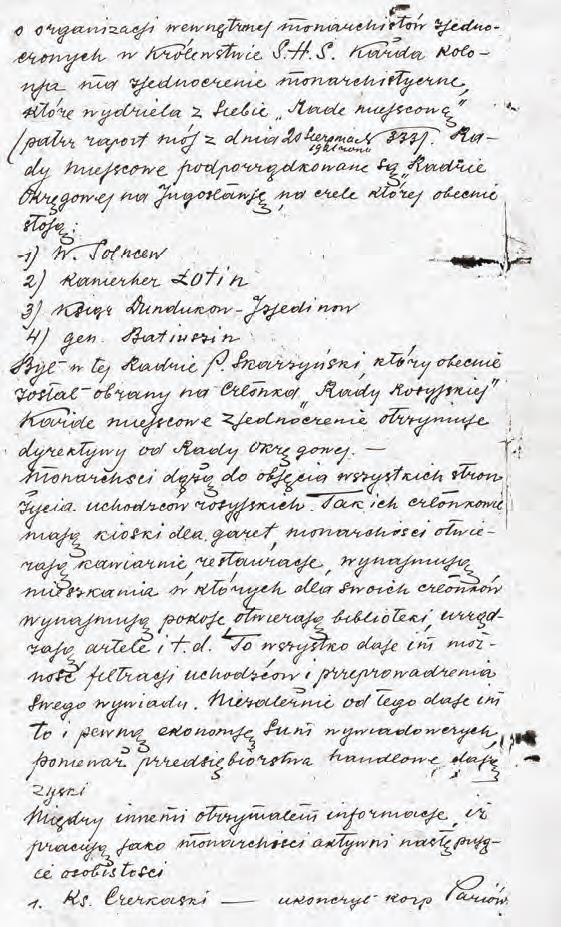 o organizacji wewnętrznej monarchistów zjedno-
czonych w Królewstwie S.H.S. Każda kolo-
nja ma zjednoczenie monarchistyczne,
które wydziela z siebie „Radę miejscową"
(patrz raport mój z dnia 20 1921 roku 333). Ra-
dy miejscowe podporządkowane są „Radzie
Okręgowej na Jugosławję, na czele której obecnie
stoją:
1) W. Solncew
2) Kamerher Łotin
3) Książe Dundukow-Izjedinow
4) gen. Batiuszin
Był w tej Radzie P. Skarżyński który obecnie
został obrany na członka „Rady Rosyjskiej"
Każde miejscowe zjednoczenie otrzymuje
dyrektywy od Rady Okręgowej. —
Monarchiści dążą do objęcia wszystkich stron
życia uchodzców rosyjskich. Tak ich członkowie
mają kioski dla gazet, monarchiści otwie-
rają kawiarnie, restauracje, wynajmują
mieszkania w których dla swoich członków
wynajmują pokoje otwierają biblioteki, urząd-
zają artele i t.d. To wszystko daje im moż-
ność filtracji uchodzców i przeprowadzenia
swego wywiadu. Niezależnie od tego daje im
to i pewną ekonomję sum wywiadowczych,
ponieważ przedsiębiorstwa handlowe dają
zyski
Między innemi otrzymałem informacje, iż
pracują jako monarchiści aktywni następują-
ce osobistości
1. Ks. Czerkaski — ukończył korp Paziów